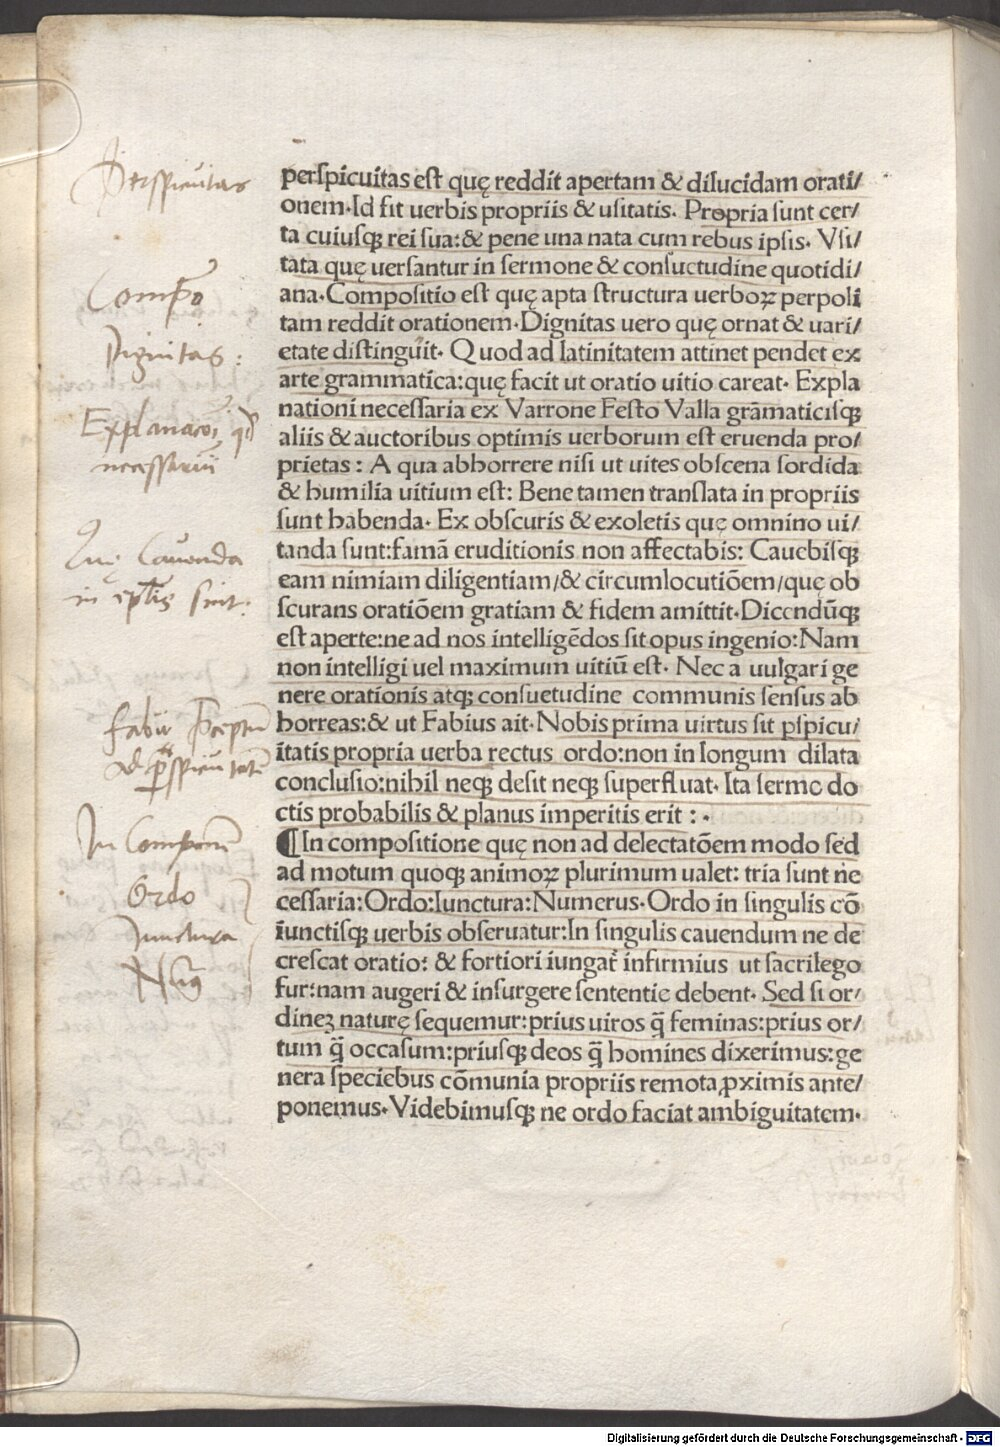 Perspicuitas
perspicuitas est quę reddit apertam & dilucidam orati/
onem·Id fit uerbis propriis & usitatis· Propria sunt cer/
ta cuiusqꝫ rei sua:& pene una nata cum rebus ipsis· Vsi/
tata quę uersantur in sermone & consuetudine quotidi/
ana·Compositio est quę apta structura uerboꝝ perpoli
tam reddit orationem·Dignitas uero quę ornat & uari/
etate distinguit· Quod ad latinitatem attinet pendet ex
arte grammatica:quę facit ut oratio uitio careat· Expla
nationi necessaria ex Varrone Festo Valla grāmaticisqꝫ
aliis & auctoribus optimis uerborum est eruenda pro/
prietas: A qua abhorrere nisi ut uites obscena sordida
& humilia uitium est: Bene tamen translata in propriis
sunt habenda· Ex obscuris & exoletis quę omnino ui/
tanda sunt:famā eruditionis non affectabis: Cauebisqꝫ
eam nimiam diligentiam/& circumlocutiōem/quę ob
scurans oratiōem gratiam & fidem amittit·Dicendūqꝫ
est aperte:ne ad nos intelligēdos sit opus ingenio:Nam
non intelligi uel maximum uitiū est· Nec a uulgari ge
nere orationis atqꝫ consuetudine communis sensus ab
horreas:& ut Fabius ait·Nobis prima uirtus sit ꝑspicu/
itatis propria uerba rectus ordo:non in longum dilata
conclusio:nihil neqꝫ desit neqꝫ superfluat· Ita sermo do
ctis probabilis & planus imperitis erit :·
¶In compositione quę non ad delectatōem modo sed
ad motum quoqꝫ animoꝝ plurimum ualet: tria sunt ne
cessaria:Ordo:Iunctura:Numerus·Ordo in singulis cō
iunctisqꝫ uerbis obseruatur:In singulis cauendum ne de
crescat oratio: & fortiori iungat̄ infirmius ut sacrilego
fur:nam augeri & insurgere sententie debent· Sed si or/
dineꝫ naturę sequemur:prius uiros q̄ feminas:prius or/
tum q̄ occasum:priusqꝫ deos q̄ homines dixerimus:ge
nera speciebus cōmunia propriis remota ꝓximis ante/
ponemus·Videbimusqꝫ ne ordo faciat ambiguitatem·
Compō
Dignitas:
necessariū
Quę Cauenda
in eplīs sint:
Fabii
Ordo
Iunctura
Digitalisierung gefördert durch die Deutsche Forschungsgemeinschaft - DFG